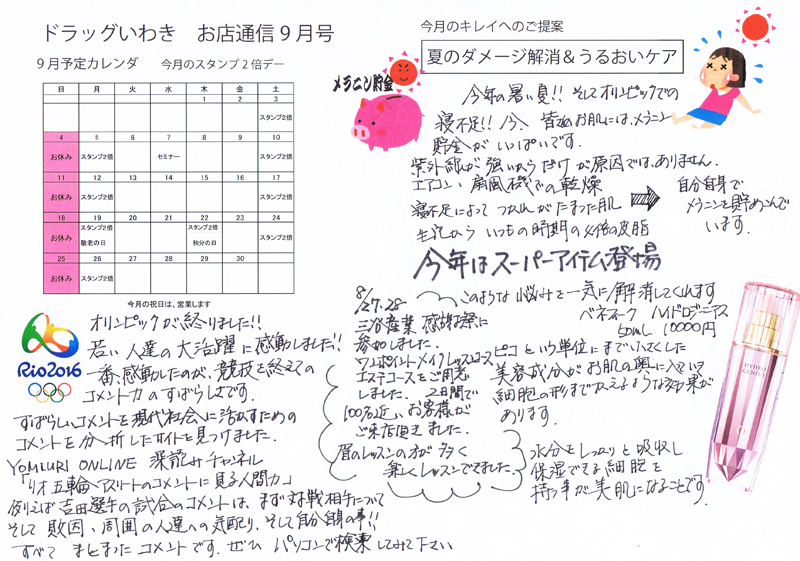 ドラッグいわき お店通信9月号
9月予定カレンダ 今月のスタンプ2倍デー
日 月 火 水 木 金 土
1 2 3
スタンプ2倍
4 5 6 7 8 9 10
お休み スタンプ2倍 セミナー スタンプ2倍
11 12 13 14 15 16 17
お休み スタンプ2倍 スタンプ2倍
18 19 20 21 22 23 24
お休み スタンプ2倍 スタンプ2倍 スタンプ2倍
敬老の日 秋分の日
25 26 27 28 29 30
お休み スタンプ2倍
今月の祝日は、営業します
Rio2016
オリンピックが終りました!!
若い人達の大活躍に感動しました!!
一番感動したのが、競技を終えての
コメント力のすばらしさです。
すばらしいコメントを現代社会に活かすための
コメントを分析したサイトを見つけました。
YOMIURI ONLINE 深読みチャンネル
「リオ五輪アスリートのコメントに見る人間力」
例えば吉田選手の試合のコメントは、まず対戦相手について
そして敗因、周囲の人達への気配り、そして自分自身の事!!
すべて まとまった コメントです。ぜひ パソコンで検索してみて下さい
今月のキレイへのご提案
夏のダメージ解消&うるおいケア
メラニン貯金
今年の暑い夏!! そしてオリンピックでの
寝不足!! 今、皆様お肌には、メラニン
貯金がいっぱいです。
紫外線が強いからだけが原因ではありません。
エアコン、扇風機での乾燥
寝不足によって つかれがたまった肌
毛穴から いつもの時期の 倍の皮脂
自分自身で
メラニンを貯めこんで
います。
今年はスーパーアイテム登場
このような悩みを一気に解消してくれます
ベネフィーク ハイドロジーニアス
50ml 10000円
ピコという単位にまで小さくした
美容成分がお肌の奥に入っていき
細胞の形までかえるような効果が
あります。
水分をしっかりと吸収し
保湿できる細胞を
持つ事が美肌になることです。
8/27.28
三谷産業 感謝祭に
参加しました。
ワンポイントメイクレッスンコース
エステコースをご用意
しました。 2日間で
100名近いお客様が
ご来店頂きました。
眉のレッスンの方が多く
楽しくレッスンできました。
HYDRO
GENIUS